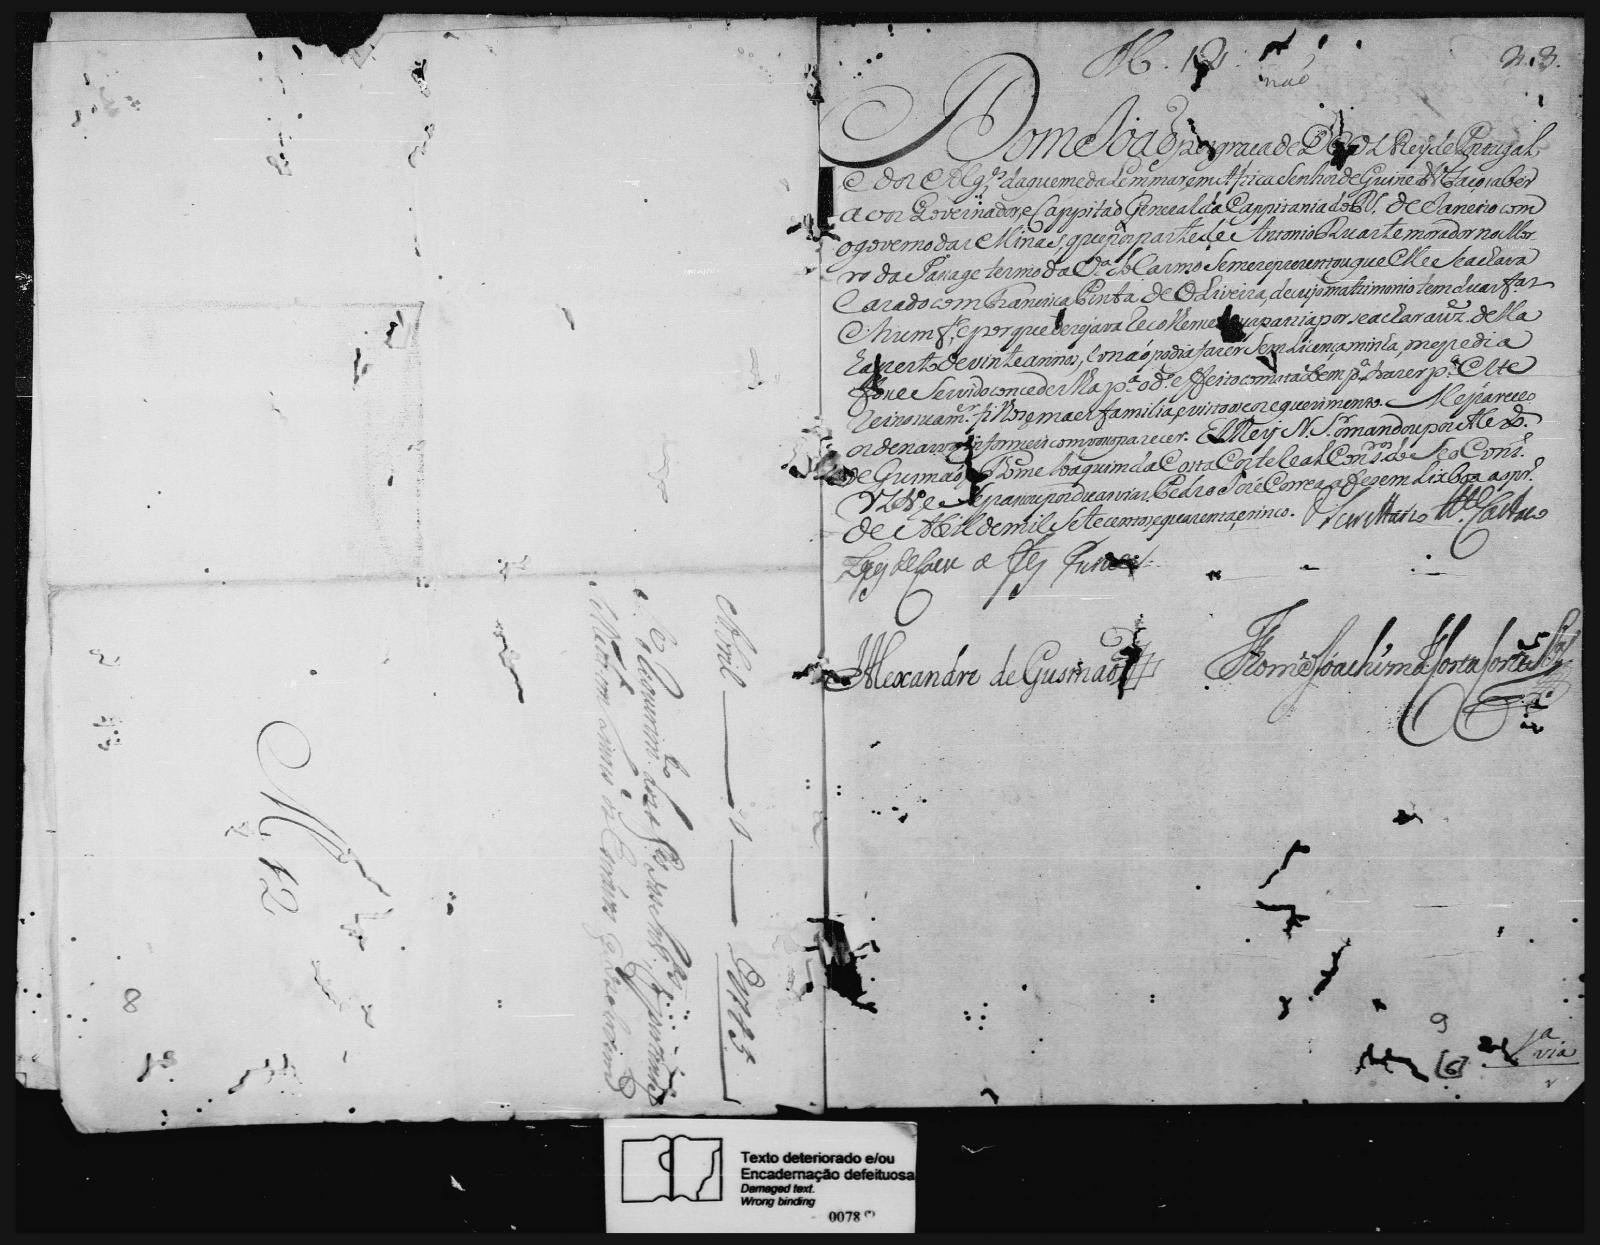 M. 12.
não
Dome Joaõ por graça de D. El Rey de Portugal
e dos Alg.es daquem e dalem mar em Africa Senhor de Guiné &c. Faço saber
a vos Governador e Cappitaõ General da Cappitania do R.º de Janeiro com
o governo das Minas, que por parte de Antonio Duarte morador no Mor-
ro da Pasage termo da V.ª do Carmo se me reprezentou que elle se achava
Cazado com Francisca Pinta de Oliveira, de cujo matrimonio tem duas f.as
e hum f.º, e porque dezejava recolherse a sua patria por se achar auz.e della
ha perto de vinte annos, e o naõ podia fazer sem licença minha, me pedia
fosse servido concederlha p.ª o d.º effeito como tambem p.ª trazer p.ª este
Reino sua m.er filhos, e mais familia, e visto o seo requerimento. Me pareceo
ordenarvos informeis com vosso parecer. El Rey N. S.r o mandou por Alex.e
de Gusmaõ, e Thome Joaquim da Costa Corte Real Cons.ros do seo Cons.º
Vltr.º e se passou por duas vias. Pedro José Correa a fes em Lixboa a pr.º
de Abril de mil e setecentos, e quarenta, e sinco. O Secretario M.el Caetano
Lopes de Lavre a fez escrever.
Alexandre de Gusmaõ
Thome Joachim da Costa Corte Real
9
[6]
1ª
via
Abril
1
1745
M. 12
8
Texto deteriorado e/ou
Encadernação defeituosa
Damaged text.
Wrong binding
0078